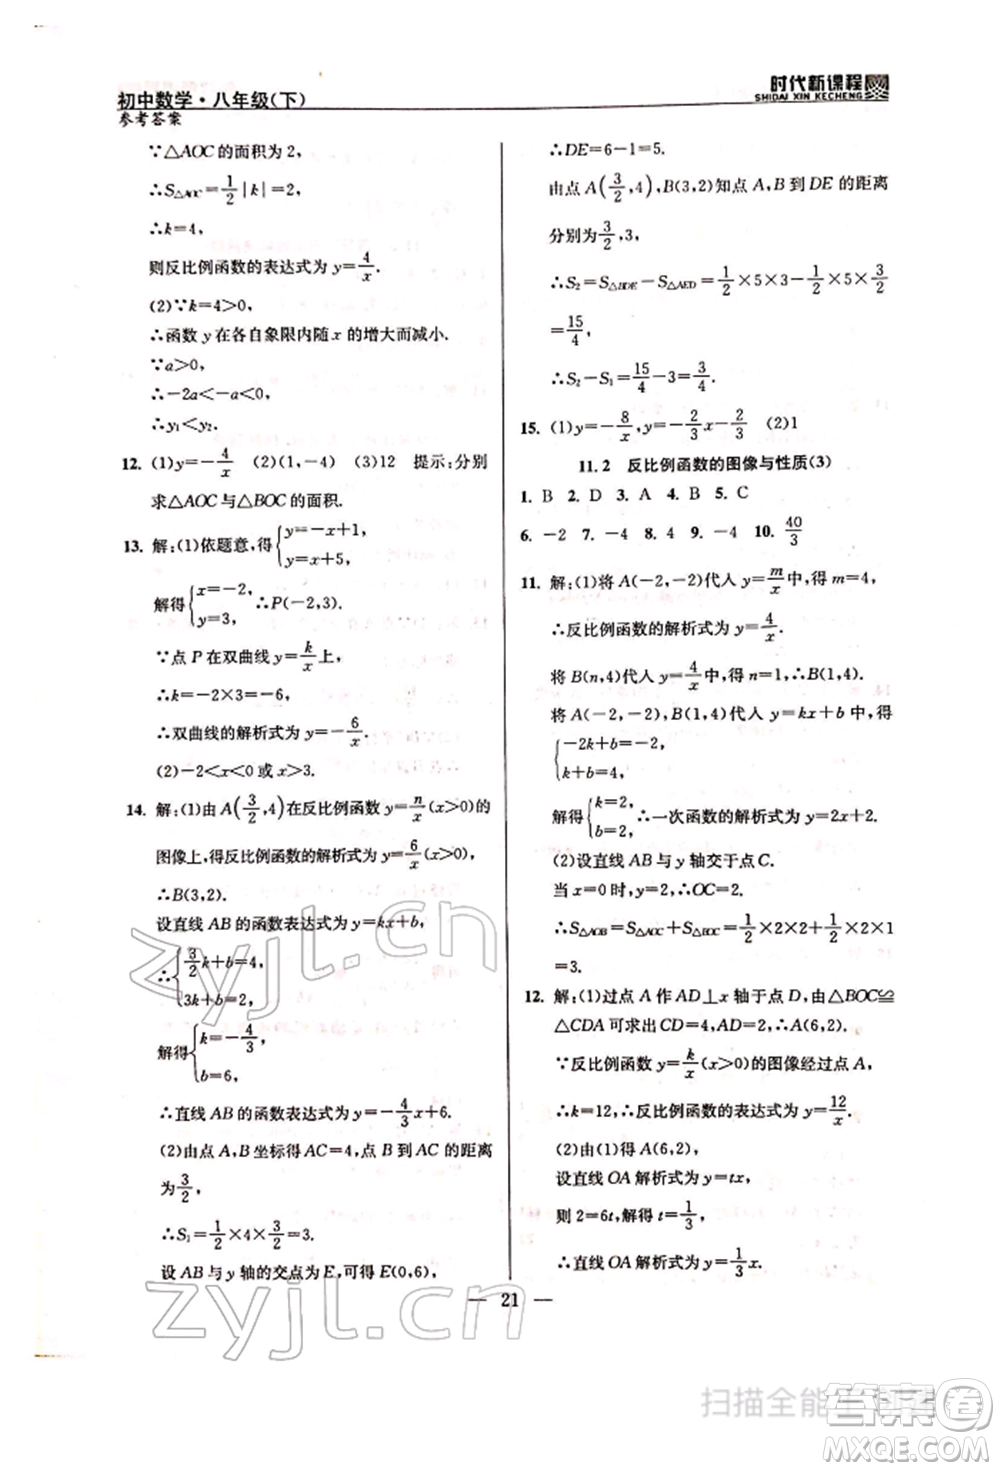 初中数学·八年级(下)
参考答案
时代新课程
SHIDAI XIN KECHENG
∵△AOC的面积为2,
∴S△AOC=1/2|k|=2,
∴k=4,
则反比例函数的表达式为y=4/x.
(2)∵k=4>0,
∴函数y在各自象限内随x的增大而减小.
∵a>0,
∴-2a<-a<0,
∴y₁<y₂.
12. (1)y=-4/x (2)(1,-4) (3)12 提示:分别
求△AOC与△BOC的面积.
13. 解:(1)依题意,得{y=-x+1,
y=x+5,
解得{x=-2,
y=3, ∴P(-2,3).
∵点P在双曲线y=k/x上,
∴k=-2×3=-6,
∴双曲线的解析式为y=-6/x.
(2)-2<x<0或x>3.
14. 解:(1)由A(3/2,4)在反比例函数y=n/x(x>0)的
图像上,得反比例函数的解析式为y=6/x(x>0),
∴B(3,2).
设直线AB的函数表达式为y=kx+b,
∴{3/2k+b=4,
3k+b=2,
解得{k=-4/3,
b=6,
∴直线AB的函数表达式为y=-4/3x+6.
(2)由点A,B坐标得AC=4,点B到AC的距离
为3/2,
∴S₁=1/2×4×3/2=3.
设AB与y轴的交点为E,可得E(0,6),
∴DE=6-1=5.
由点A(3/2,4),B(3,2)知点A,B到DE的距离
分别为3/2,3,
∴S₂=S△BDE-S△AED=1/2×5×3-1/2×5×3/2
=15/4,
∴S₂-S₁=15/4-3=3/4.
15. (1)y=-8/x,y=-2/3x-2/3 (2)1
11.2 反比例函数的图像与性质(3)
1. B 2. D 3. A 4. B 5. C
6. -2 7. -4 8. 4 9. -4 10. 40/3
11. 解:(1)将A(-2,-2)代入y=m/x中,得m=4,
∴反比例函数的解析式为y=4/x.
将B(n,4)代入y=4/x中,得n=1,∴B(1,4).
将A(-2,-2),B(1,4)代入y=kx+b中,得
{-2k+b=-2,
k+b=4,
解得{k=2,
b=2, ∴一次函数的解析式为y=2x+2.
(2)设直线AB与y轴交于点C.
当x=0时,y=2,∴OC=2,
∴S△AOB=S△AOC+S△BOC=1/2×2×2+1/2×2×1
=3.
12. 解:(1)过点A作AD⊥x轴于点D,由△BOC≌
△CDA可求出CD=4,AD=2,∴A(6,2).
∵反比例函数y=k/x(x>0)的图像经过点A,
∴k=12,∴反比例函数的表达式为y=12/x.
(2)由(1)得A(6,2),
设直线OA解析式为y=tx,
则2=6t,解得t=1/3,
∴直线OA解析式为y=1/3x.
— 21 —
zyjl.cn
zyjl.cn
扫描全能王 创建
答案卷
MXQE.COM